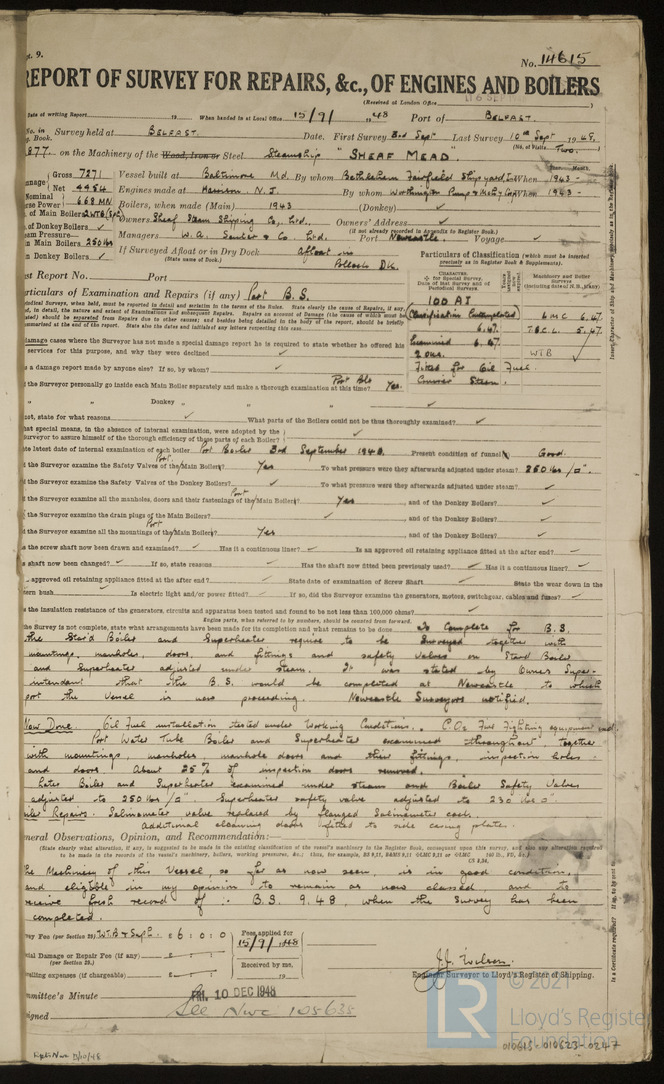 pt. 9.
No. 14615
REPORT OF SURVEY FOR REPAIRS, &c., OF ENGINES AND BOILERS
(Received at London Office
Date of writing Report 19 When handed in at Local Office 15/9/1948 Port of BELFAST.
No. in Book. Survey held at BELFAST. Date. First Survey 3rd Sept Last Survey 10th Sept 1948.
(No. of Visits Two.)
877. on the Machinery of the Wood, Iron or Steel Steamship "SHEAF MEAD".
Gross 7271 Vessel built at Baltimore Md. By whom Bethlehem Fairfield Shipyard When 1943 -
Net 4454 Engines made at Harrison. N.J. By whom Worthington Pump & When 1943 -
Nominal Horse Power 668 MN Boilers, when made (Main) 1943 (Donkey) ✓
of Main Boilers Owners Sheaf Steam Shipping Co., Ltd., Owners' Address ✓
(if not already recorded in Appendix to Register Book.)
of Donkey Boilers ✓ Managers W. A. Souter & Co. Ltd. Port Newcastle. Voyage ✓
Steam Pressure—
in Main Boilers 250 lbs If Surveyed Afloat or in Dry Dock Afloat in
(State name of Dock.) Pollock Dk.
in Donkey Boilers ✓
Last Report No. Port
Particulars of Classification (which must be inserted precisely as in Register Book & Supplements).
Particulars of Examination and Repairs (if any) Part B.S.
100 A1
Classification Contemplated
6.47.
Examined 6.47.
2 dks.
Fitted for Oil Fuel.
Machinery and Boiler Surveys
LMC 6.47.
T.S.C.L. 5.47.
WTB
damage cases where the Surveyor has not made a special damage report he is required to state whether he offered his
services for this purpose, and why they were declined ✓
Is a damage report made by anyone else? If so, by whom? ✓
Did the Surveyor personally go inside each Main Boiler separately and make a thorough examination at this time? Port Blr Yes.
" " Donkey " " " ✓
If not, state for what reasons ✓ What parts of the Boilers could not be thus thoroughly examined? ✓
What special means, in the absence of internal examination, were adopted by the
Surveyor to assure himself of the thorough efficiency of those parts of each Boiler? ✓
State latest date of internal examination of each boiler Port Boiler 3rd September 1948. Present condition of funnel Good.
Did the Surveyor examine the Safety Valves of the Port Main Boiler? Yes To what pressure were they afterwards adjusted under steam? 250 lbs/□".
Did the Surveyor examine the Safety Valves of the Donkey Boilers? ✓ To what pressure were they afterwards adjusted under steam? ✓
Did the Surveyor examine all the manholes, doors and their fastenings of the Port Main Boiler? Yes, and of the Donkey Boilers? ✓
Did the Surveyor examine the drain plugs of the Main Boilers? ✓, and of the Donkey Boilers? ✓
Did the Surveyor examine all the mountings of the Port Main Boiler? Yes, and of the Donkey Boilers? ✓
Has the screw shaft now been drawn and examined? ✓ Has it a continuous liner? ✓ Is an approved oil retaining appliance fitted at the after end? ✓
Has shaft now been changed? ✓ If so, state reasons ✓ Has the shaft now fitted been previously used? ✓ Has it a continuous liner? ✓
Is an approved oil retaining appliance fitted at the after end? ✓ State date of examination of Screw Shaft ✓ State the wear down in the
stern bush ✓ Is electric light and/or power fitted? ✓ If so, did the Surveyor examine the generators, motors, switchgear, cables and fuses? ✓
Has the insulation resistance of the generators, circuits and apparatus been tested and found to be not less than 100,000 ohms? ✓
Engine parts, when referred to by numbers, should be counted from forward.
If the Survey is not complete, state what arrangements have been made for its completion and what remains to be done To Complete for B.S.
the Star'd Boiler and Superheater require to be Surveyed together with
mountings, manholes, doors, and fittings and safety valves on Star'd Boiler
and Superheater adjusted under steam. It was stated by Owners Super-
intendent that the B.S. would be completed at Newcastle to which
port the Vessel is now proceeding. Newcastle Surveyors notified.
Now Done. Oil Fuel installation tested under Working Conditions. CO2 Fire Fighting equipment
Port Water Tube Boiler and Superheater examined throughout together
with mountings, manholes, manhole doors and their fittings, inspection holes
and doors. About 25% of inspection doors removed.
Later Boiler and Superheater examined under steam and Boiler Safety Valves
adjusted to 250 lbs/□" Superheater safety valve adjusted to 230 lbs □".
Repairs. Salinometer valve replaced by flanged Salinometer cock.
Additional cleaning doors fitted to side casing plates.
General Observations, Opinion, and Recommendation:—
(State clearly what alteration, if any, is suggested to be made in the existing classification of the vessel's machinery in the Register Book, consequent upon this survey, and also any alteration required
to be made in the records of the vessel's machinery, boilers, working pressures, &c.;
The Machinery of this Vessel, so far as now seen, is in good condition,
and eligible in my opinion to remain as now classed and to
receive fresh record of :- B.S. 9.48, when the Survey has been
completed.
Survey Fee (per Section 29) W.T.B & Suph. £6:0:0 Fees applied for 15/9/1948
Special Damage or Repair Fee (if any) (per Section 29.) £ : :
Received by me, 19
Travelling expenses (if chargeable) £ : :
J.J. Wilson.
Engineer Surveyor to Lloyd's Register of Shipping.
Committee's Minute FRI. 10 DEC 1948
Assigned See Nwc 108638
© 2021
LR
Lloyd's Register
Foundation
010615-010623-0247